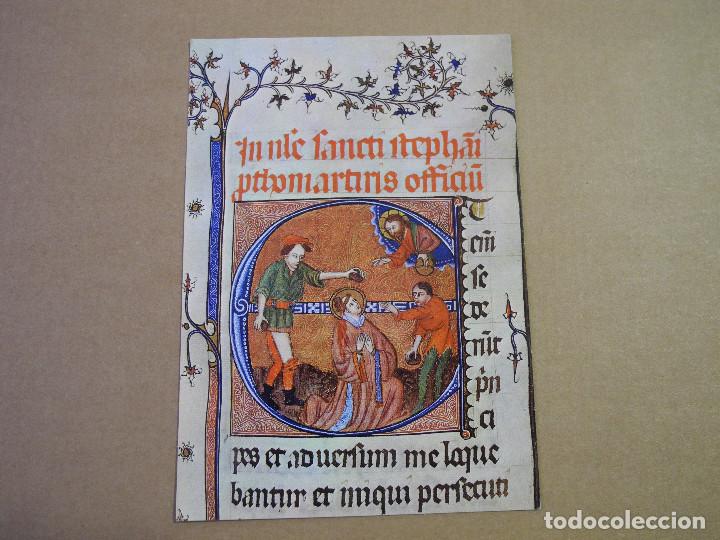 In nłe sancti stephāi
ꝓthomartiris officiū
E
T
enī
se
de
rūt
p̄n
ci
pes et aduersum me loque
bantur et iniqui persecuti
todocoleccion.net